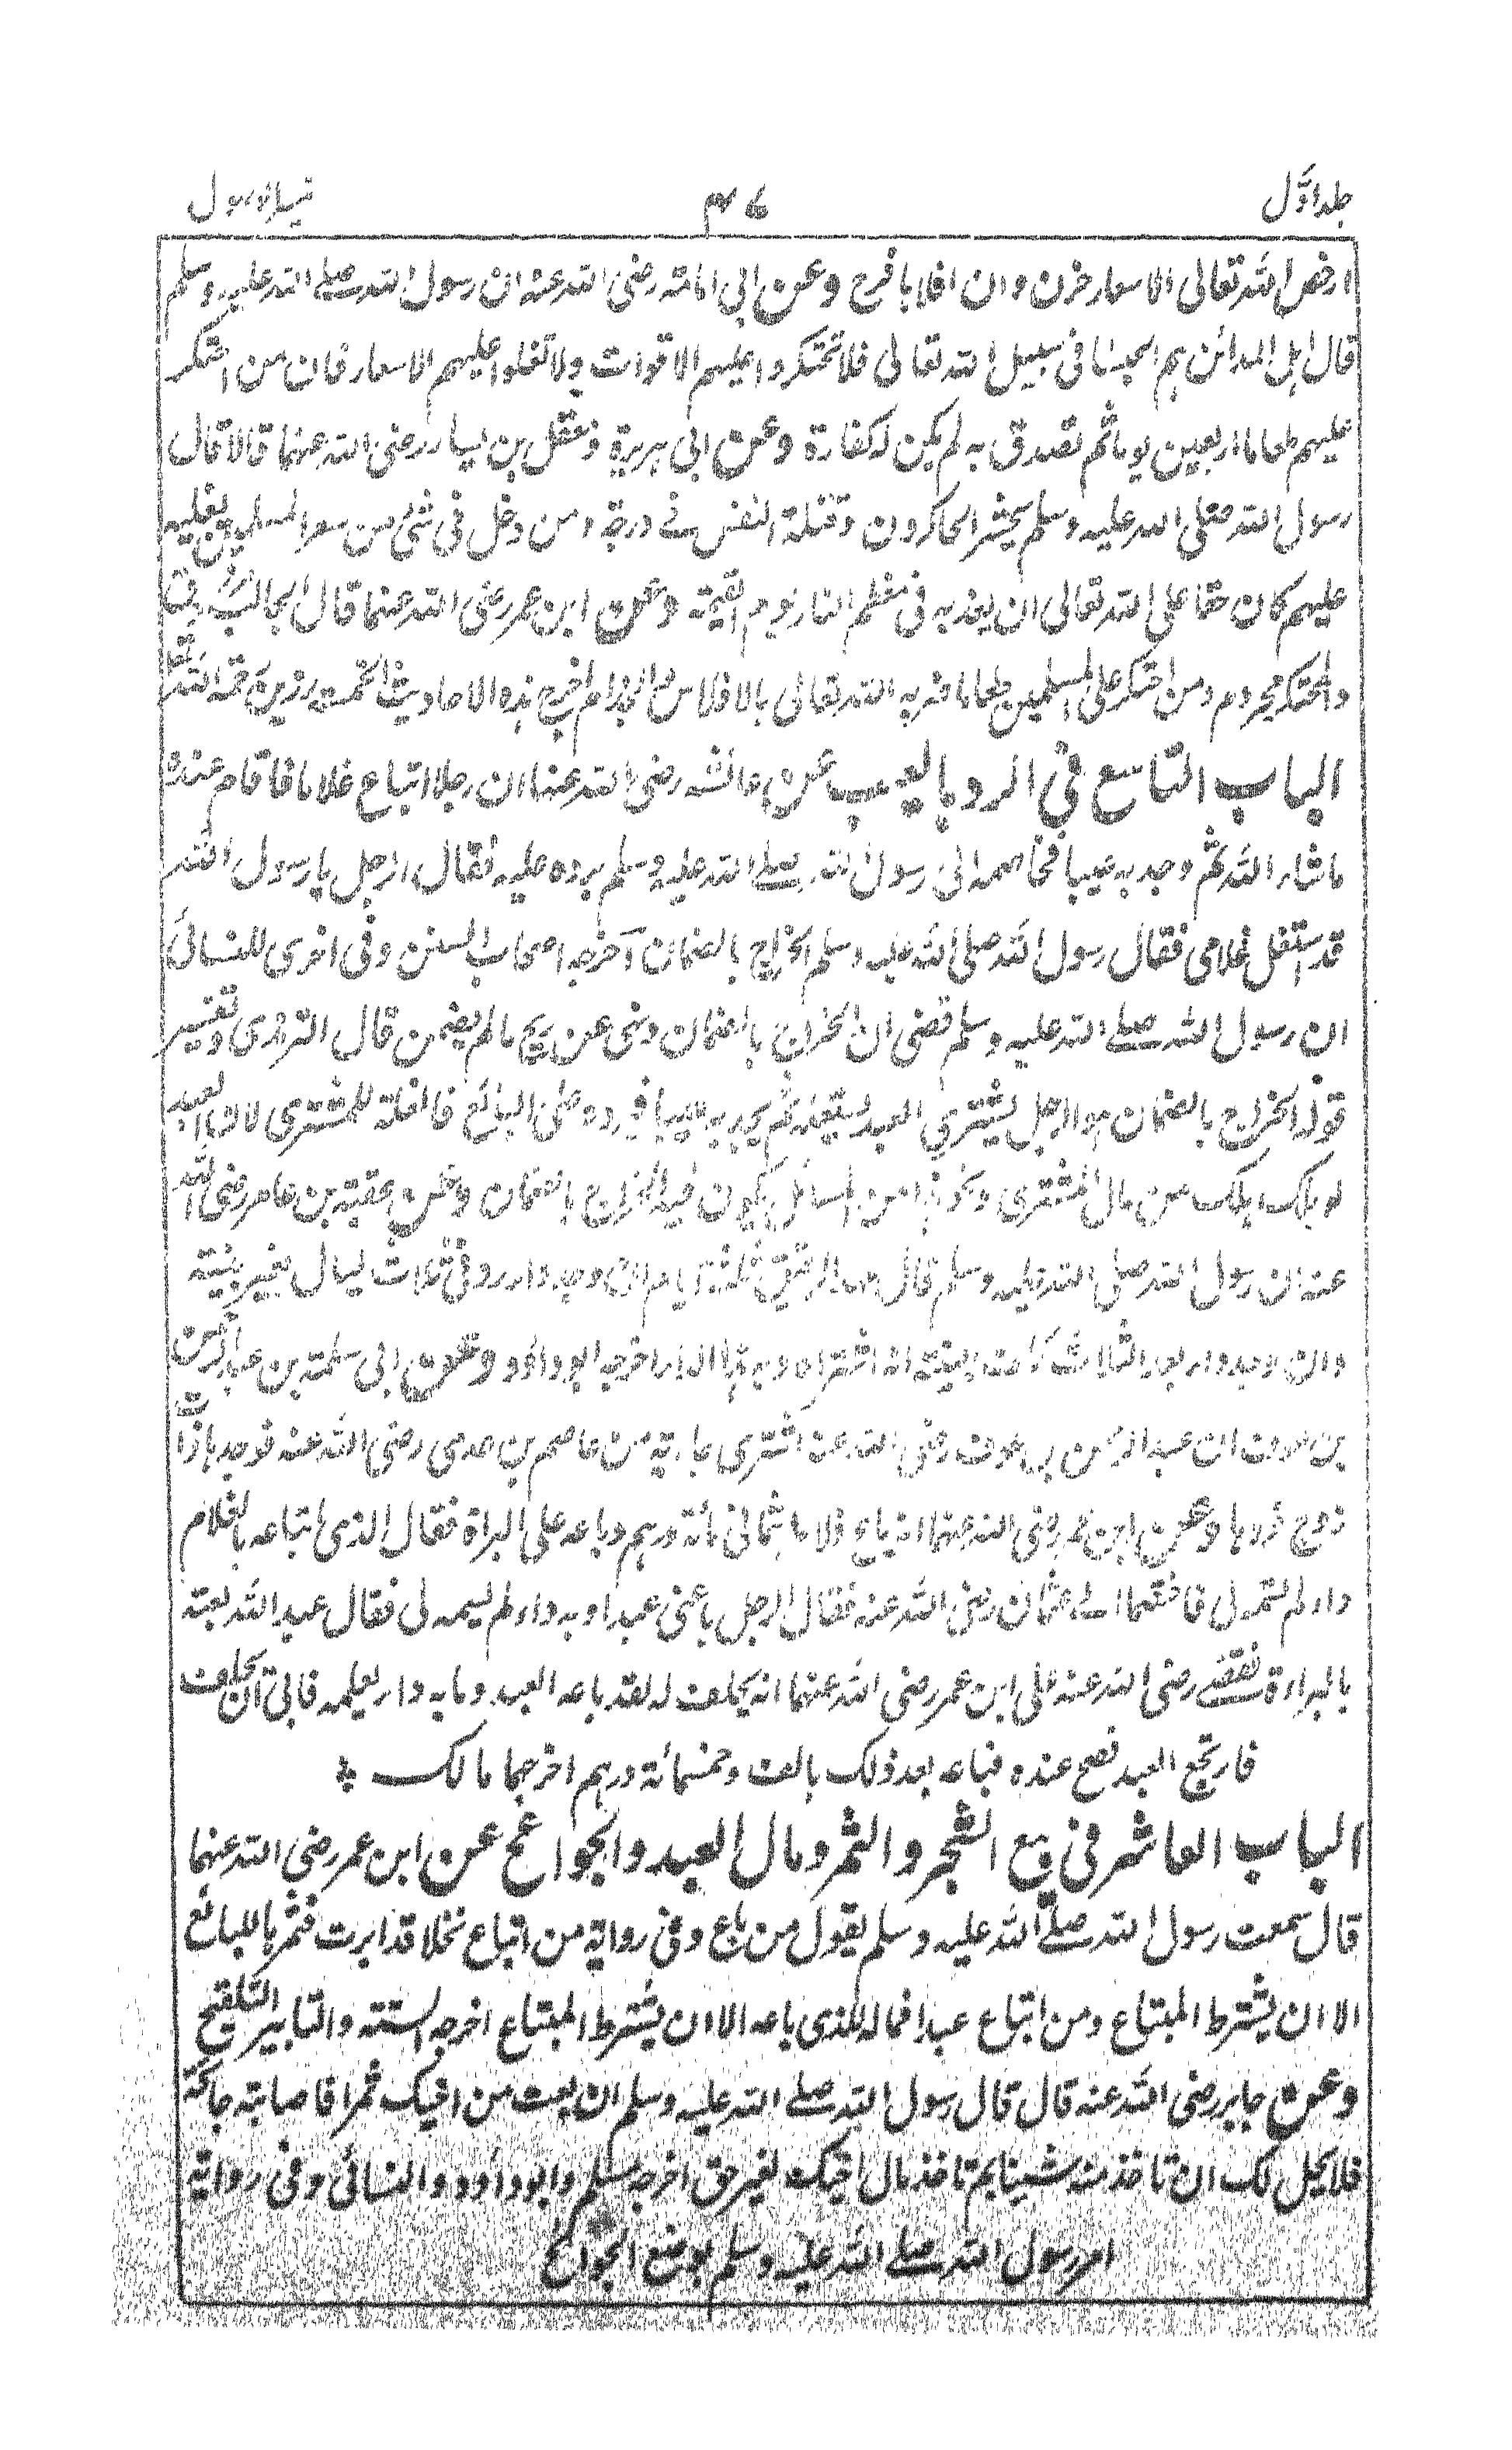 جلد اوّل ٤٧ تيسير الاصول
ارخص الله تعالى الاسعار حزن وان اغلاها فرح وعن ابى امامة رضى الله عنه ان رسول الله صلے الله عليه وسلم
قال اهل المدائن هم الحبساء فى سبيل الله تعالى فلا تحتكروا عليهم الاقوات ولا تغلوا عليهم الاسعار فان من احتكر
عليهم طعاما اربعين يوما ثم تصدق به لم يكن له كفارة وعن ابى هريرة ومعقل بن يسار رضى الله عنهما قالا قال
رسول الله صلى الله عليه وسلم يحشر الحاكرون وقتلة النفس فے درجة ومن دخل فى شئ من سعر المسلمين يغليه
عليهم كان حقا على الله تعالى ان يعذبه فى معظم النار يوم القيمة وعن ابن عمر رضى الله عنهما قال الجالب مرزوق
والمحتكر محروم ومن احتكر على المسلمين طعاما ضربه الله تعالى بالافلاس والجذام اخرج هذه الاحاديث الخمسة رزين رحمه الله تعالى
الباب التاسع فى الرد بالعيب عن عائشة رضى الله عنها ان رجلا ابتاع غلاما فاقام عنده
ماشاء الله ثم وجد به عيبا فخاصمه الى رسول الله صلے الله عليه وسلم برده عليه فقال الرجل يا رسول الله
قد استغل غلامى فقال رسول الله صلى الله عليه وسلم الخراج بالضمان اخرجه اصحاب السنن وفى اخرى للنسائى
ان رسول الله صلے الله عليه وسلم قضى ان الخراج بالضمان ونهى عن ربح مالم يضمن قال الترمذى وتفسير
قوله الخراج بالضمان هو الرجل يشترى العبد يستغله ثم يجد به عيبا فيرده على البائع فالغلة للمشترى لان العبد
لو هلك هلك من مال المشترى ونحو هذا من المسائل يكون فيه الخراج بالضمان وعن عقبة بن عامر رضى الله
عنه ان رسول الله صلى الله عليه وسلم قال عهدة الرقيق ثلثة ايام ان وجد داء رد فى ثلاث ليال بغير بينة
وان وجد داء بعد الثلاث كلف البينة انه اشتراه وبه هذا الداء اخرجه ابو داؤد وعن ابى سلمة بن عبد الرحمن
بن عوف ان عبد الرحمن بن عوف رضى الله عنه اشترى جارية من عاصم بن عدى رضى الله عنه فوجدها ذات
زوج فردها وعن ابن عمر رضى الله عنهما انه باع غلاما بثمانى مائة درهم وباعه على البراة فقال الذى ابتاعه بالغلام
داء لم تسمه لى فاختصما الى عثمان رضى الله عنه فقال الرجل باعنى عبدا وبه داء لم يسمه لى فقال عبد الله بعته
بالبراءة فقضے رضى الله عنه على ابن عمر رضى الله عنهما انه يحلف له لقد باعه العبد ومابه داء يعلمه فابى ان يحلف
فارتجع العبد فصح عنده فباعه بعد ذلك بالف وخمسمائة درهم اخرجها مالك
الباب العاشر فى بيع الشجر والثمر ومال العبد والجوائح عن ابن عمر رضى الله عنهما
قال سمعت رسول الله صلے الله عليه وسلم يقول من باع وفى رواية من ابتاع نخلا قد ابرت فثمرها للبائع
الا ان يشترط المبتاع ومن ابتاع عبدا فماله للذى باعه الا ان يشترط المبتاع اخرجه الستة والتابير التلقيح
وعن جابر رضى الله عنه قال قال رسول الله صلے الله عليه وسلم ان بعت من اخيك ثمرا فاصابته جائحة
فلا يحل لك ان تاخذ منه شيئا بم تاخذ مال اخيك بغير حق اخرجه مسلم وابو داؤد والنسائى وفى رواية
امر رسول الله صلے الله عليه وسلم بوضع الجوائح